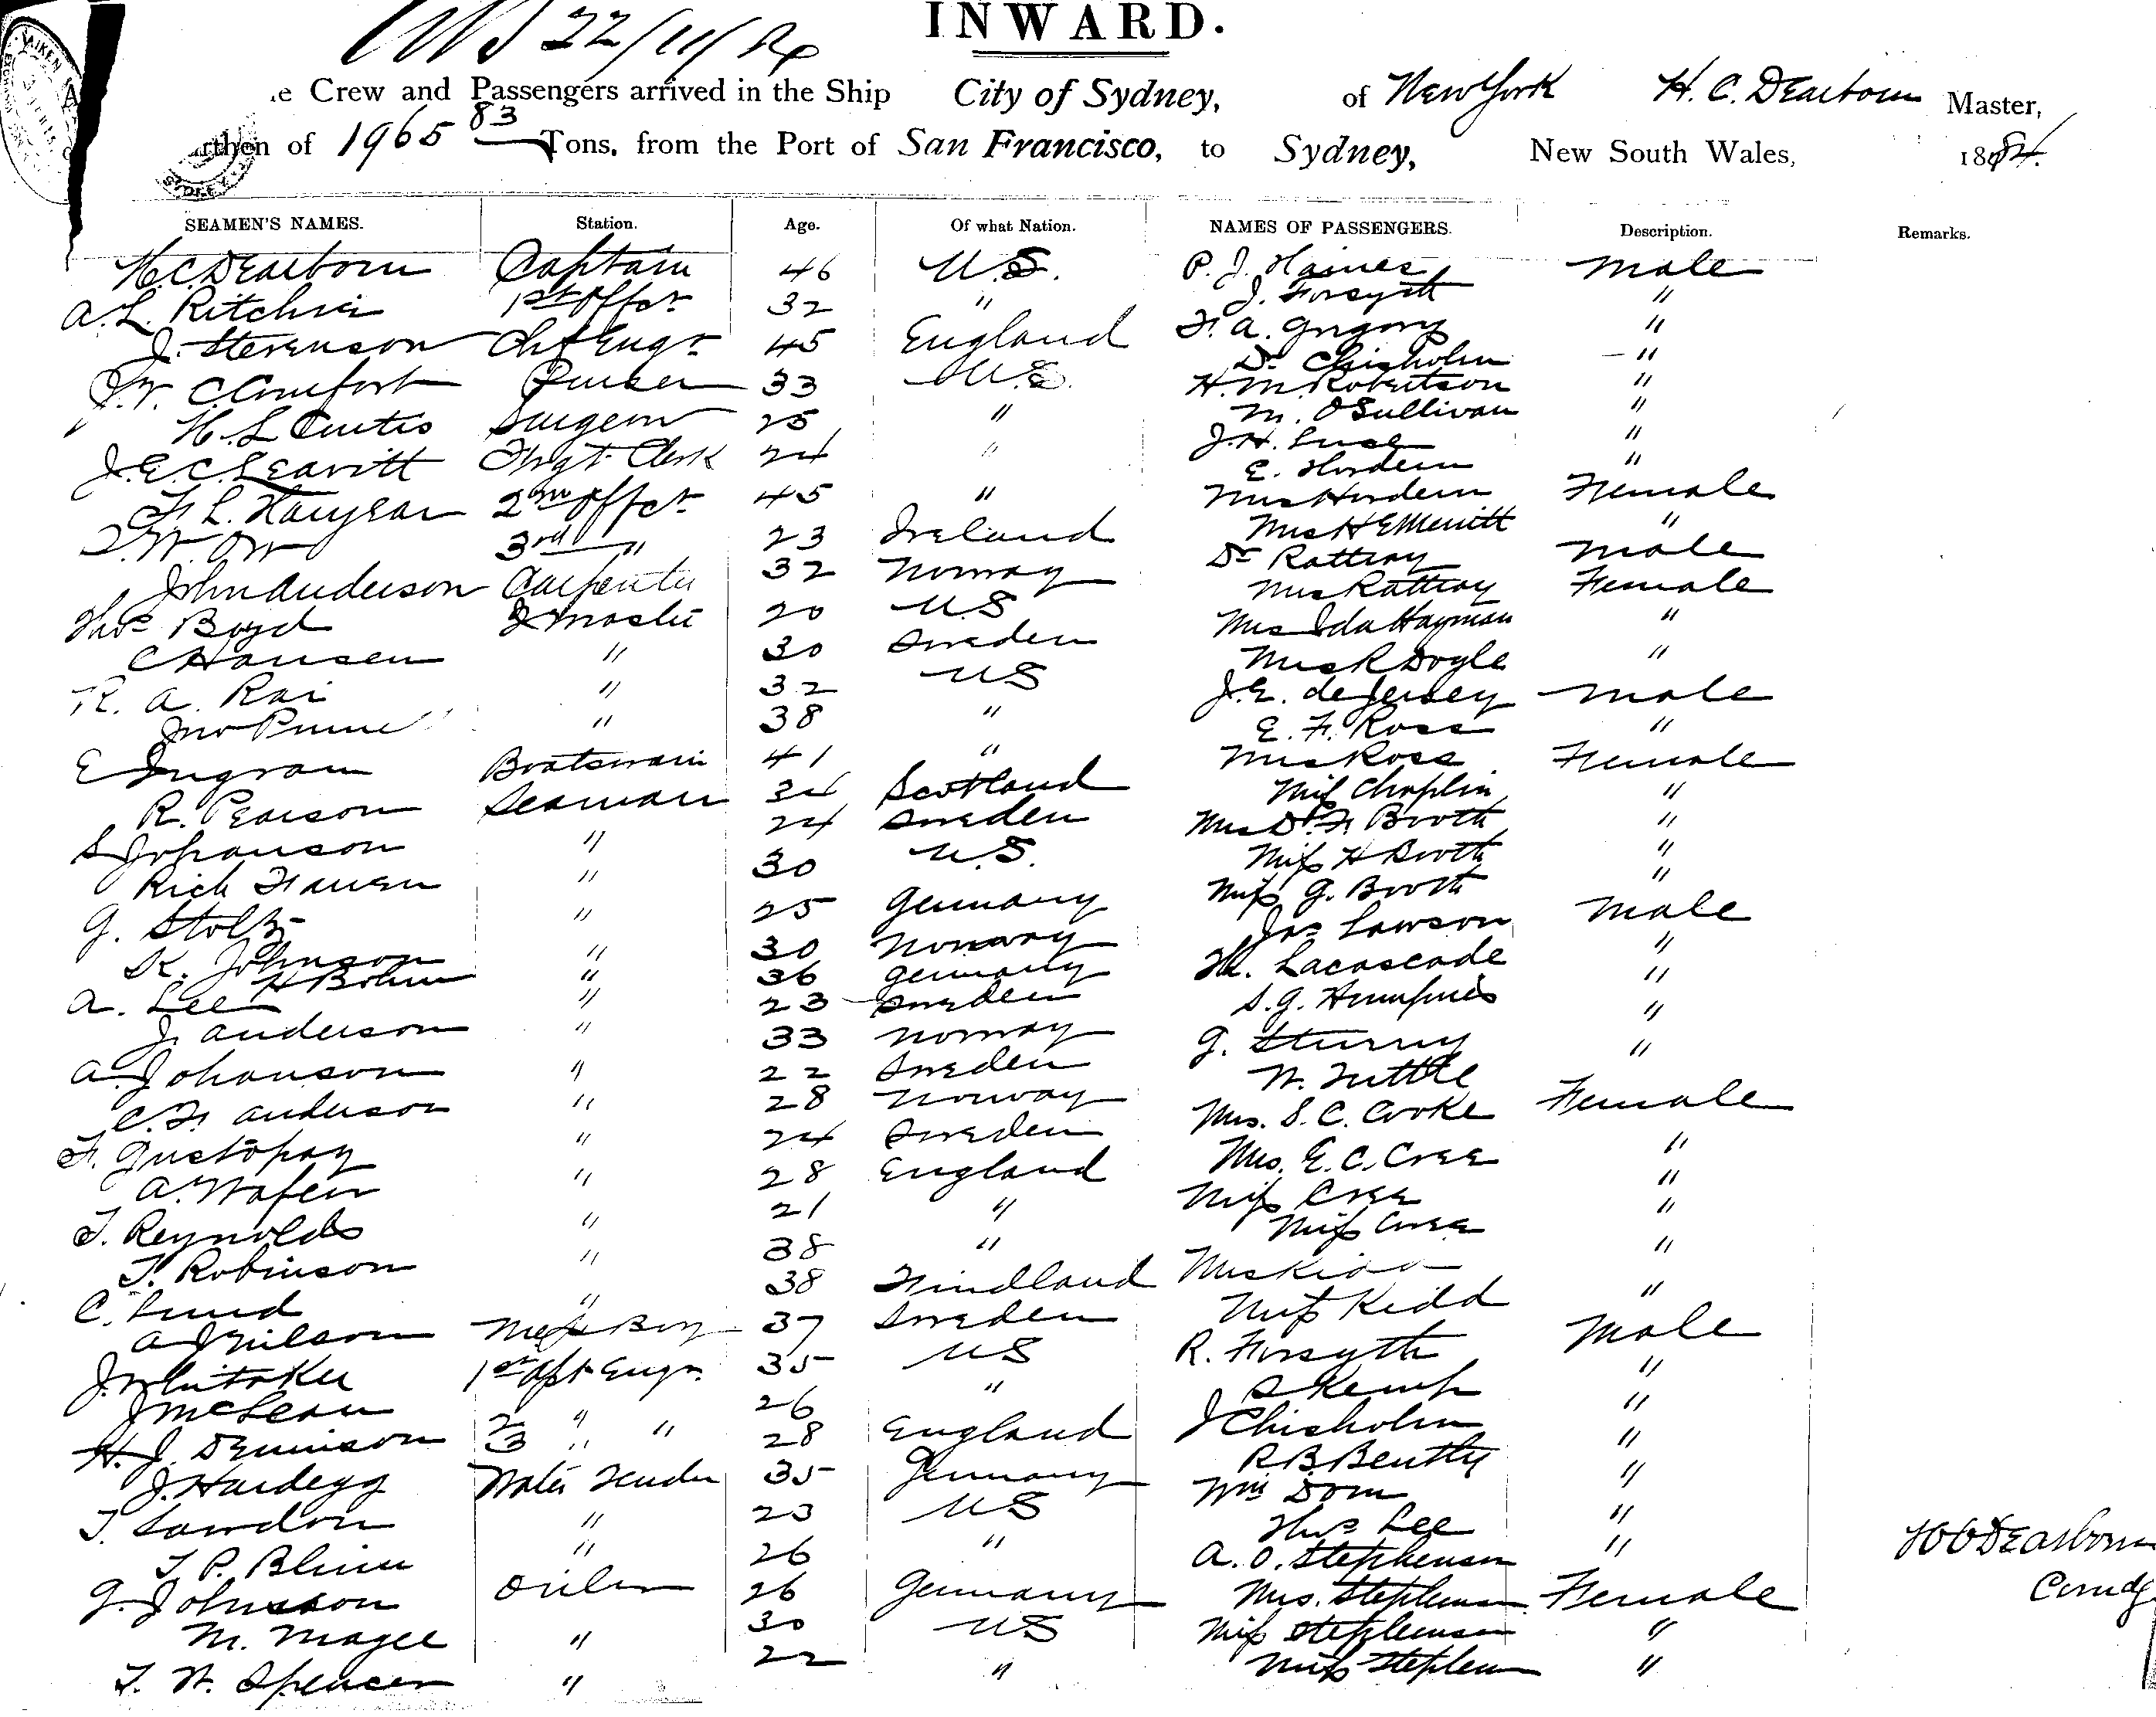 INWARD.
22/11/84
Crew and Passengers arrived in the Ship City of Sydney, of New York H. C. Dearborn Master,
of 1965 83 Tons, from the Port of San Francisco, to Sydney, New South Wales, 1884.
SEAMEN'S NAMES. Station. Age. Of what Nation. NAMES OF PASSENGERS. Description. Remarks.
H.C. Dearborn Captain 46 U.S. P. J. Haines Male
A. L. Ritchie 1st Offcr 32 " J. Forsyth "
J. Stevenson Chf Engr 45 England F. A. Grigory "
J. W. C. Comfort Purser 33 U.S. Dr Chisholm "
H. L Curtis Surgeon 25 " H. M. Robertson "
J. E. C. Leavitt Frgt Clerk 24 " M. O'Sullivan "
F. L. 2nd Offcr 45 " J. H. Luse "
T. W. Orr 3rd " 23 Ireland E. Hordern "
John Anderson Carpenter 32 Norway Mrs Hordern Female
Thos Boyd Qr Master 20 U.S Mrs H E Merritt "
C Hansen " 30 Sweden Dr Rattray Male
R. A. Rai " 32 US Mrs Rattray Female
Jno " 38 " Mrs Ida Hayman "
E Ingram Boatswain 41 " Mrs R Doyle "
R. Pearson Seaman 34 Scotland J. E. de Jersey Male
S Johanson " 24 Sweden E. F. Ross "
Rich " 30 U.S. Mrs Ross Female
G. Stoltz " 25 Germany Miss Chaplin "
K. Johnson " 30 Norway Mrs Dr F. Booth "
H Bohm " 36 Germany Miss H Booth "
A. Lee " 23 Sweden Miss G. Booth "
J. Anderson " 33 Norway Jas Lawson Male
A. Johanson " 22 Sweden Lacascade "
C. F. Anderson " 28 Norway S. G. Humphries "
F. " 24 Sweden G. "
A. " 28 England W. Tuttle "
T. Reynolds " 21 " Mrs. S. C. Cooke Female
T. Robinson " 38 " Mrs. E. C. Cree "
C. Lund " 38 Findland Miss Cree "
A J Nilson Mess Boy 37 Sweden Miss Cree "
J. Whitaker 1st Asst Engr. 35 US Mrs Kidd "
J McLean 2 " " 26 " Miss Kidd "
H. J. Dennison 3 " " 28 England R. Forsyth Male
J. Hardegg Water Tender 35 Germany S Kemp "
T. Lawdon " 23 US J Chisholm "
T. P. Blinn " 26 " R. B. Bently "
G. Johnson Oiler 26 Germany Wm Dorn "
M. Magee " 30 US Thos Lee "
T. W. Spencer " 22 " A. O. Stephenson "
Mrs. Stephenson Female
Miss Stephenson "
Miss Stephen "
H C Dearborn
Comdg